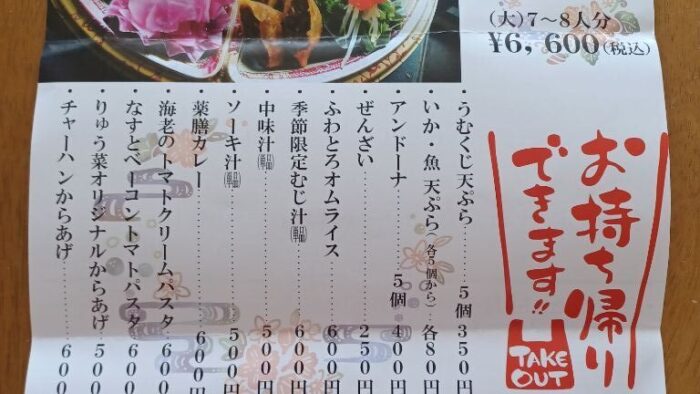 (大)7~8人分
¥6,600(税込)
お持ち帰り
できます!!
TAKE
OUT
・うむくじ天ぷら……5個350円
・いか・魚 天ぷら(各5個から)…各80円
・アンドーナ……5個400円
・ぜんざい……250円
・ふわとろオムライス……600円
・季節限定むじ汁(単品)……600円
・中味汁(単品)……500円
・ソーキ汁(単品)……500円
・薬膳カレー……600円
・海老のトマトクリームパスタ…600
・なすとベーコントマトパスタ…600
・りゅう菜オリジナルからあげ…500
・チャーハンからあげ……600